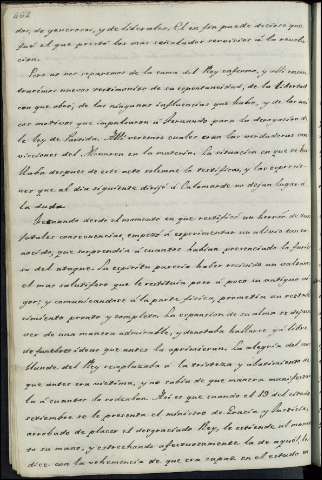 462
dos, de generosos, y de liberales. El en fin puede decirse que
fué el que prestó los mas señalados servicios á la revolu
cion.
Pero no nos separemos de la cama del Rey enfermo, y allí encon
traremos nuevos testimonios de su espontaneidad, de la libertad
con que obró, de las ningunas influencias que hubo, y de los úni
cos motivos que impulsaron á Fernando para la derogacion de
la ley de Partida. Allí veremos cuales eran las verdaderas con
vicciones del Monarca en la materia. La situacion en que se ha
llaba despues de este acto solemne lo testifica, y las espresio
nes que al dia siguiente dirijió á Calomarde no dejan lugar á
la duda.
Fernando desde el momento en que rectificó un herror de tan
fatales consecuencias, empezó á esperimentar un alivio tan co
nocido, que sorprendia á cuantos habian presenciado la furia
del ataque. Su espíritu parecia haber recibido un balsamo
el mas salutífero que le restituia poco á poco su antiguo vi
gor; y comunicandose á la parte física, prometia un restable
cimiento pronto y completo. La espansion de su alma se dejaba
ver de una manera admirable, y denotaba hallarse ya libre
de funebres ideas que antes la oprimieran. La alegria del
Rey reemplazaba á la tristeza y abatimiento de
que antes era víctima, y no sabia de que manera manifestar
la á cuantos le rodeaban. Así es que cuando el 19 del citado
setiembre se le presenta el ministro de Gracia y Justicia,
arrobado de placer el desgraciado Rey, le estiende al momen
to su mano, y estrechando afectuosamente la de aquel, le
dice con la vehemencia de que era capaz en el estado en